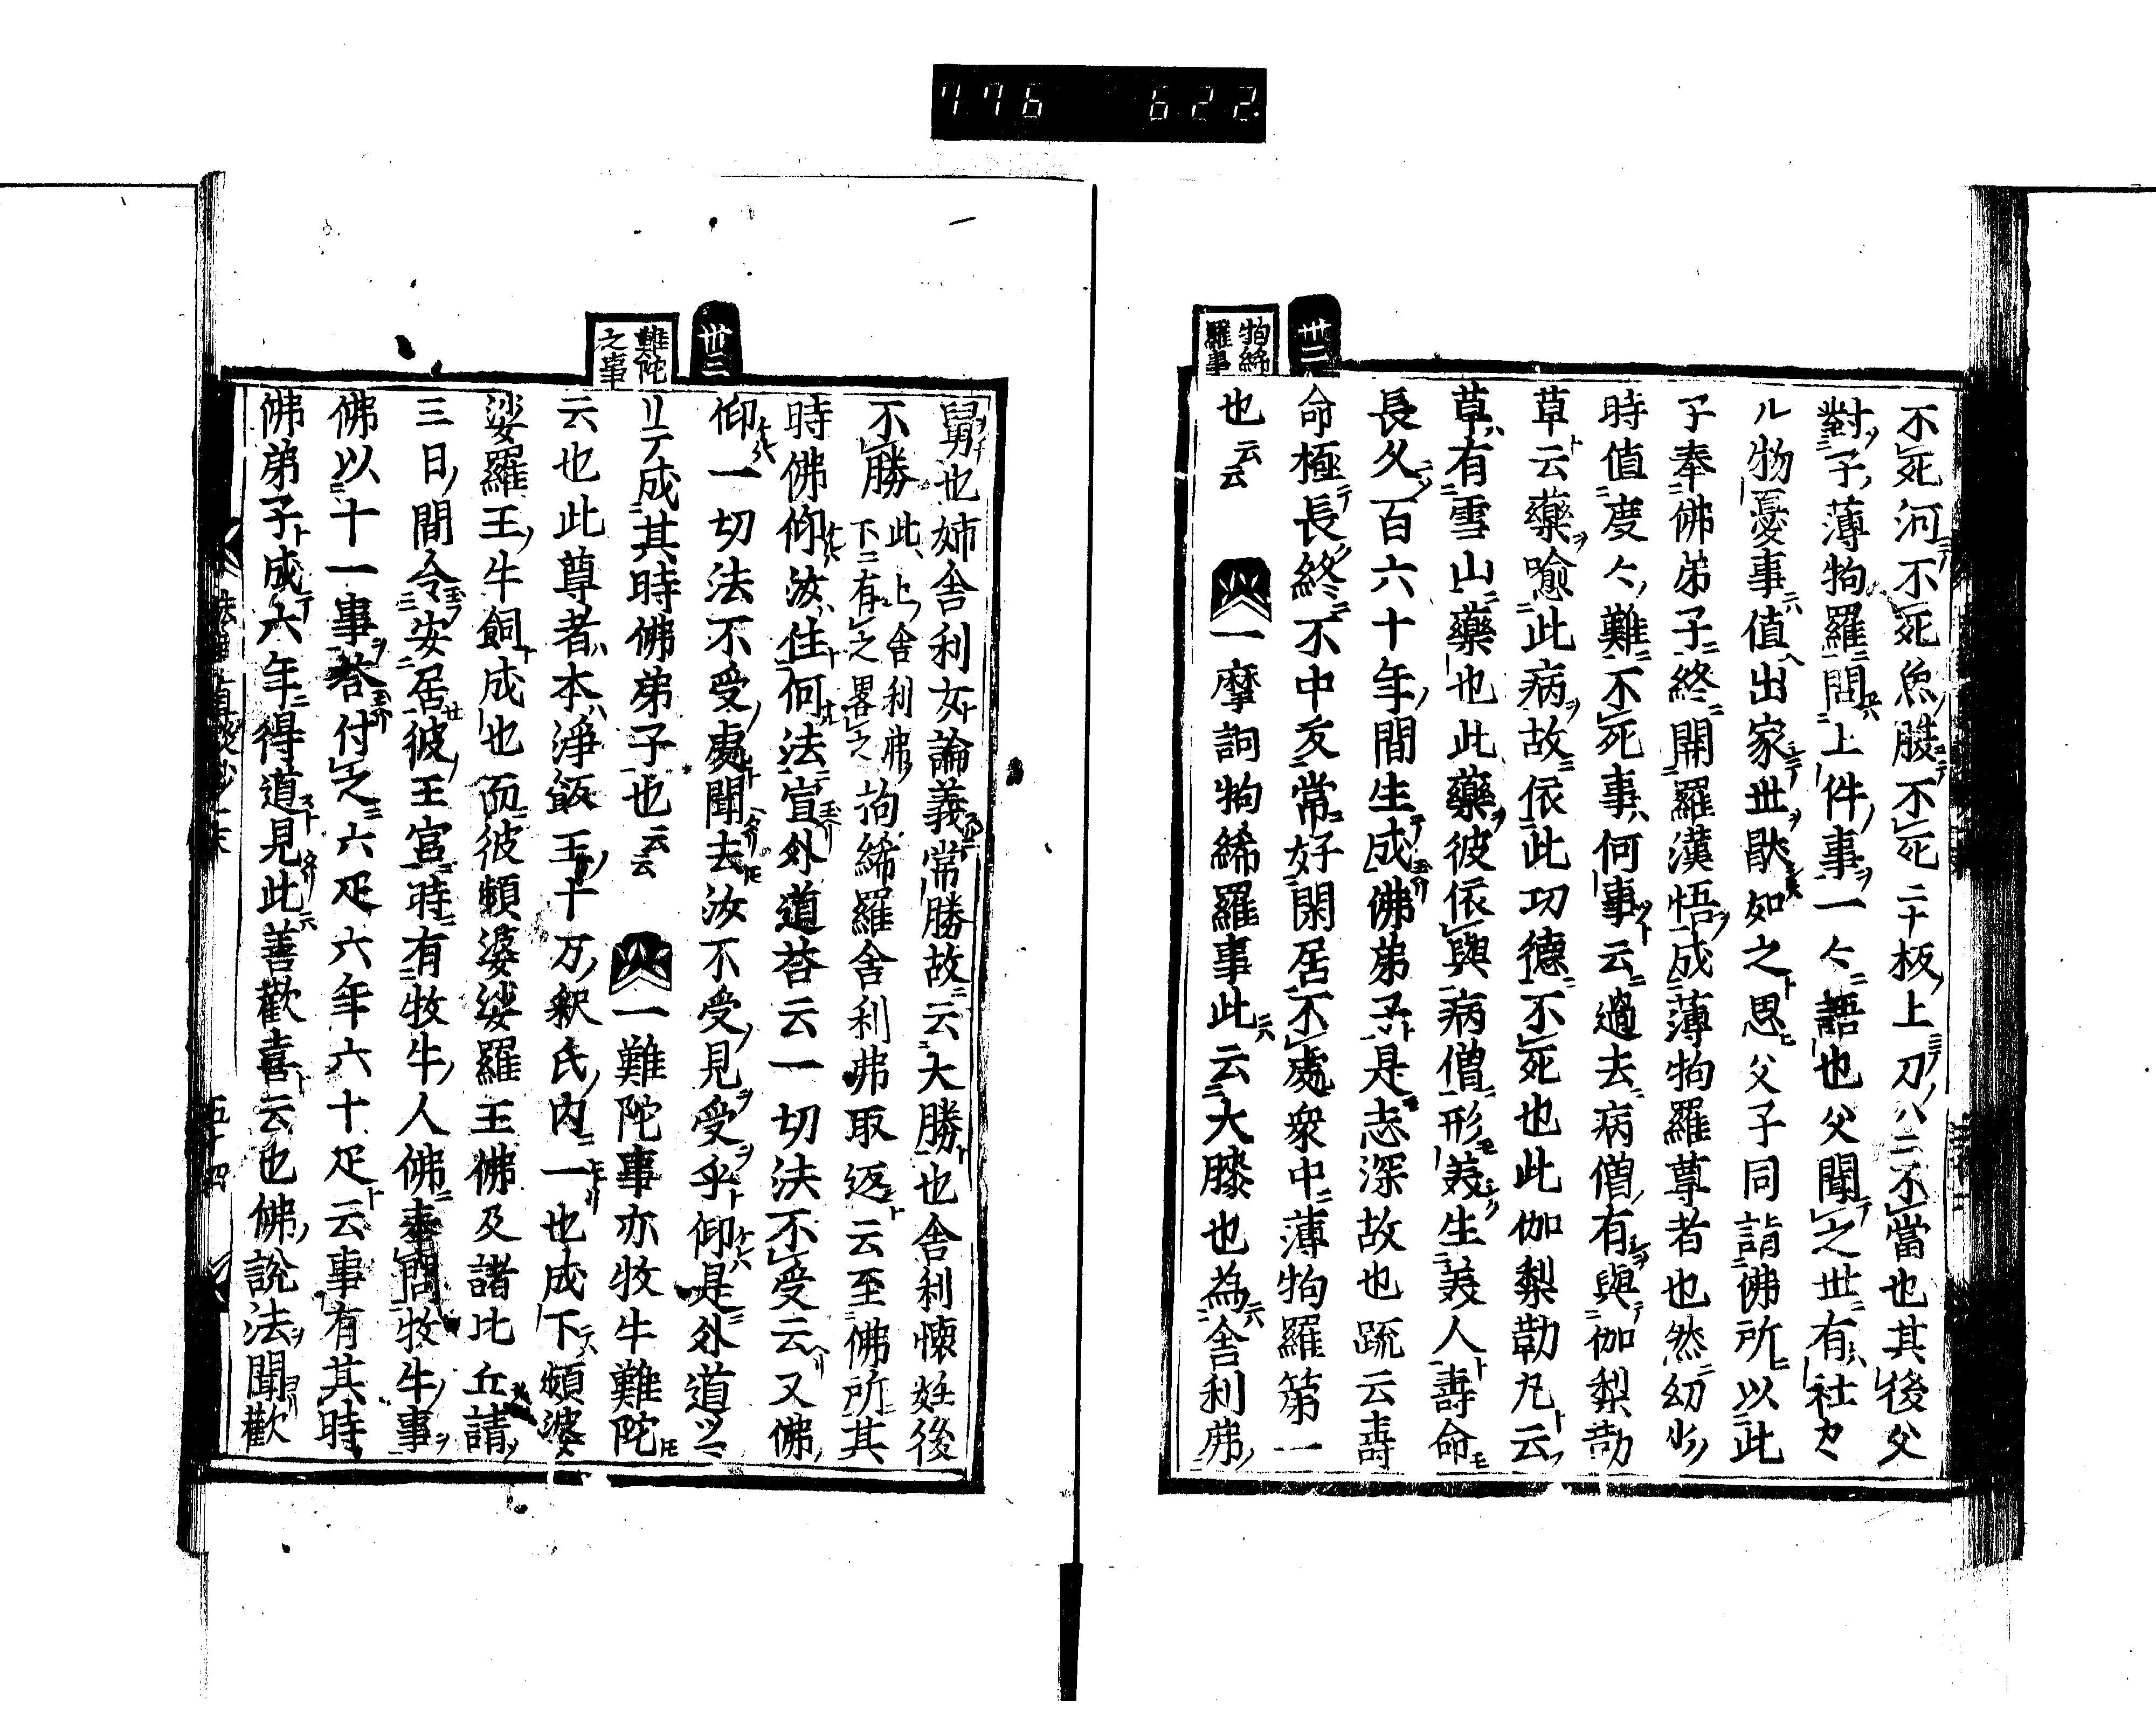 776 622
不死河不死魚腹不死二十板上刀八二不當也其後父
對子薄狗羅問上件事一々語也父聞之世有社々
ル物憂事値出家世猒如之思父子同詣佛所以此
子奉佛弟子終開羅漢悟成薄狗羅尊者也然幼少
時値度々難不死事何事云過去病僧有與伽梨勒
草云藥喩此病故依此功德不死也此伽梨勒九云
草有雪山藥也此藥彼依與病僧形羙生羙人壽命
長久百六十年間生成佛弟子是志深故也疏云壽
命極長終不中夭常好閑居不處衆中薄狗羅第一
也云云 一摩訶狗絺羅事此云大膝也為舍利弗
卅二
狗絺羅事
舅也姉舍利女論義常勝故云大勝也舍利懷妊後
不勝此上舍利弗下二有之畧之狗絺羅舍利弗取返云至佛所其
時佛仰汝住何法宣外道荅云一切法不受云又佛
仰一切法不受處聞去汝不受見受乎仰是外道ツ
リテ成其時佛弟子也云云 一難陀事亦牧牛難陀
云也此尊者本淨飯王十万釈氏内一也成下頻婆
娑羅王牛飼成也而彼頻婆娑羅王佛及諸比丘請
三日間令安居彼王宮時有牧牛人佛奉問牧牛事
佛以十一事荅付之六疋六年六十疋云事有其時
佛弟子成六年得道見此善歡喜云也佛說法聞歡
卅三
難陀之事
直談鈔一末
五十四